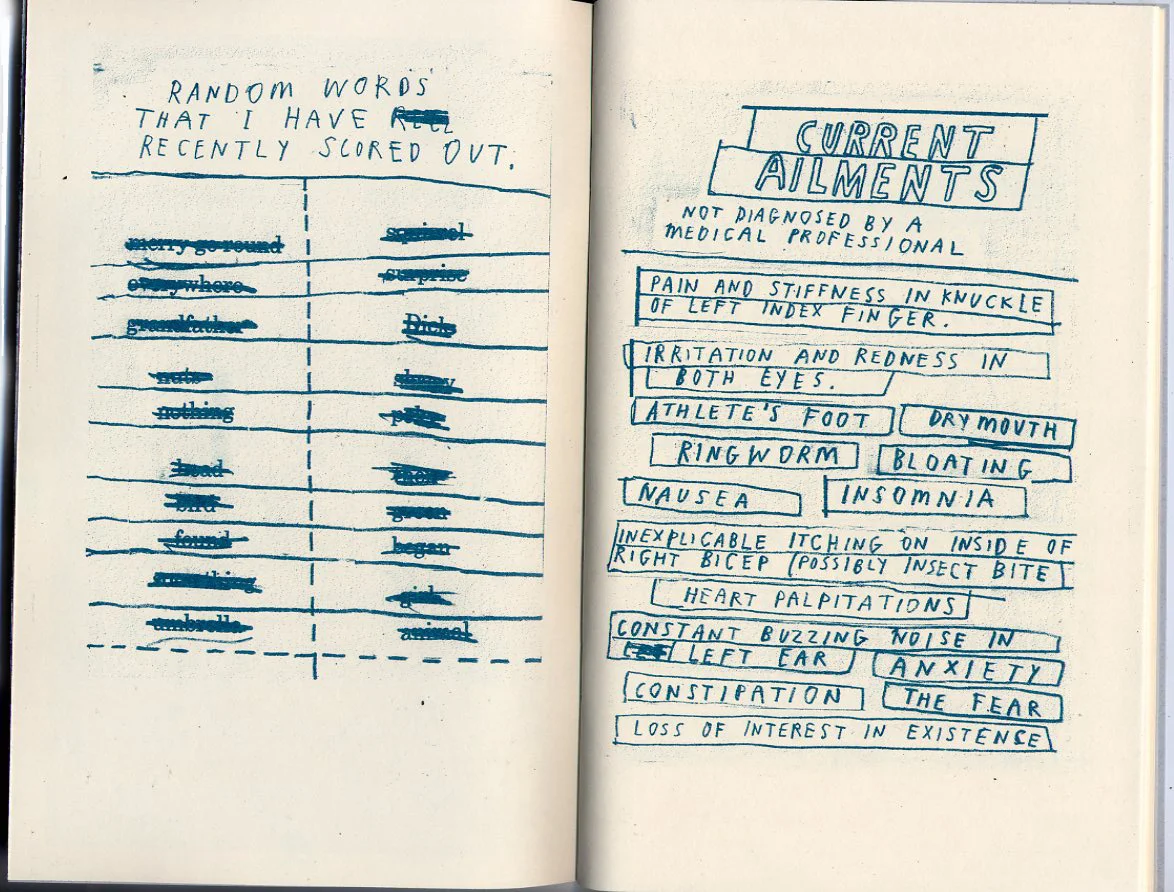 RANDOM WORDS
THAT I HAVE
RECENTLY SCORED OUT.
merry-go-round
squirrel
everywhere
surprise
grandfather
Dick
nuts
nothing
head
bird
green
found
began
umbrella
animal
CURRENT
AILMENTS
NOT DIAGNOSED BY A
MEDICAL PROFESSIONAL
PAIN AND STIFFNESS IN KNUCKLE
OF LEFT INDEX FINGER.
IRRITATION AND REDNESS IN
BOTH EYES.
ATHLETE'S FOOT
DRY MOUTH
RINGWORM
BLOATING
NAUSEA
INSOMNIA
INEXPLICABLE ITCHING ON INSIDE OF
RIGHT BICEP (POSSIBLY INSECT BITE
HEART PALPITATIONS
CONSTANT BUZZING NOISE IN
LEFT EAR
ANXIETY
CONSTIPATION
THE FEAR
LOSS OF INTEREST IN EXISTENCE